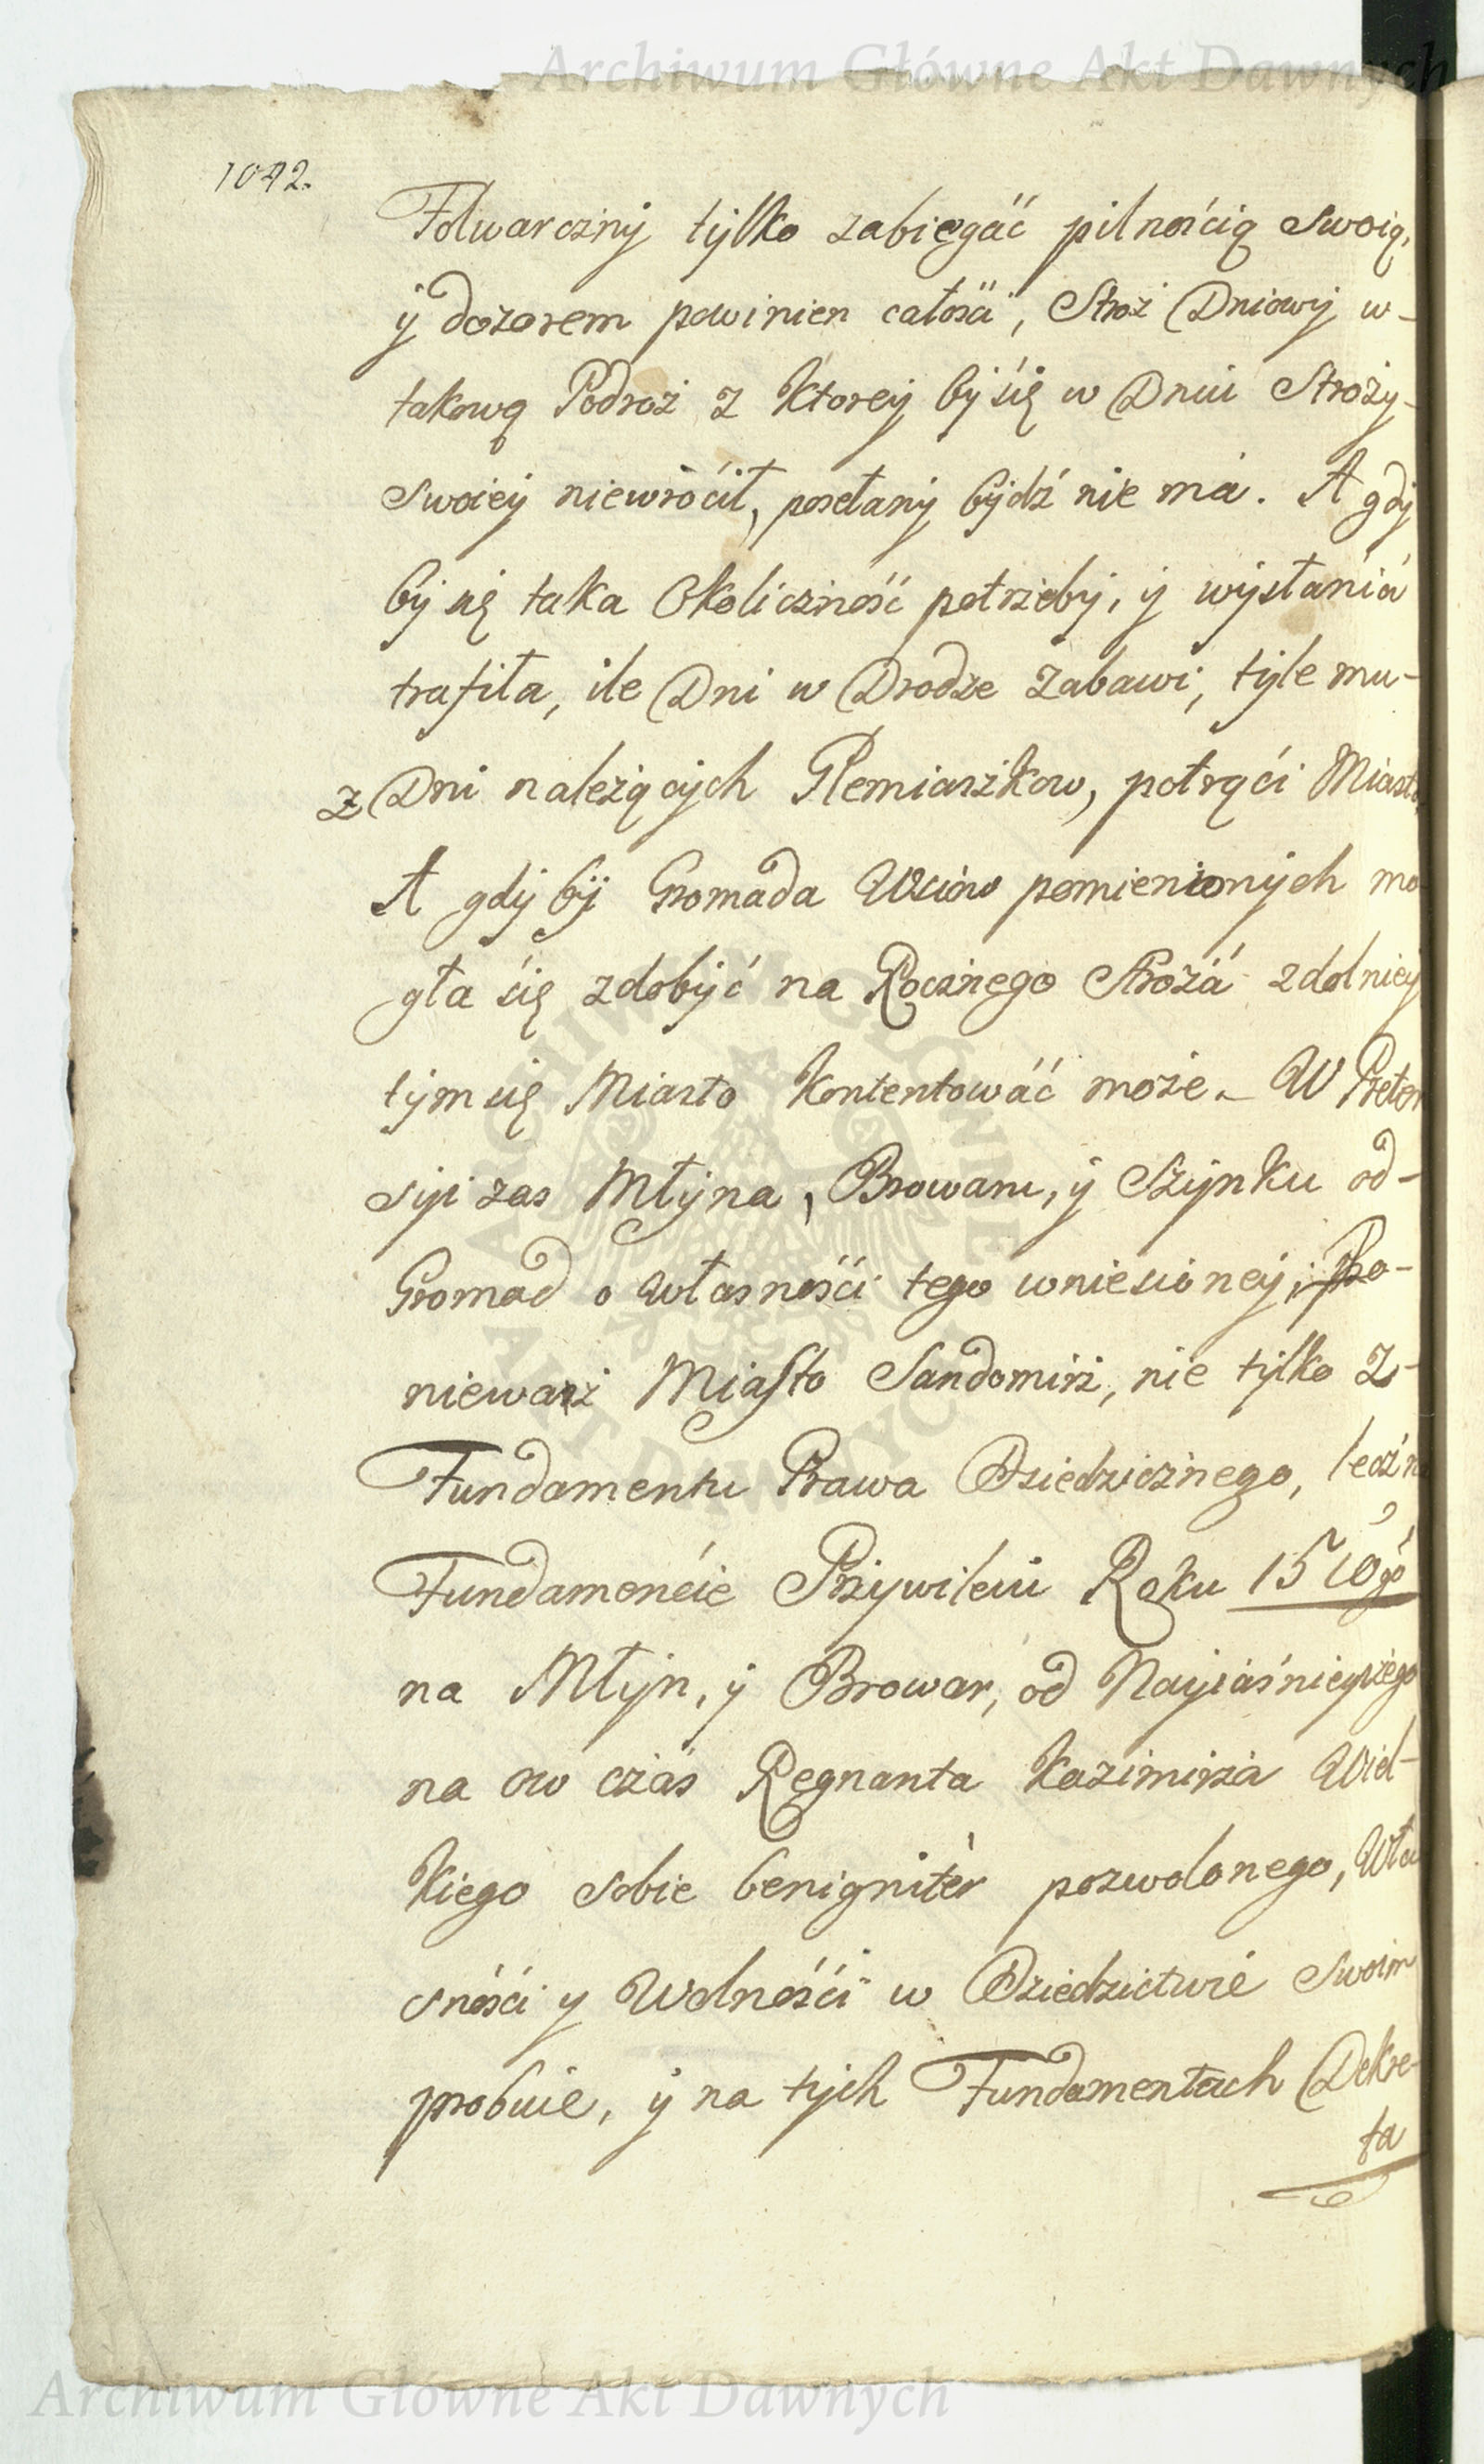 Archiwum Główne Akt Dawnych
1042.
Folwarczny tylko zabiegáć pilnością swoią,
y dozorem powinien całości, Stroż Dniowy w-
takową Podroż z Ktorey by się w Dniu Stroży-
swoiey niewróćił, posełany bydź nie má. A gdy
by się taka Okoliczność potrzeby, y wysłaniá
trafiła, ile Dni w Drodze zabawi, tyle mu-
z Dni należących Plemiaszkow, potrąći Miasto
A gdy by Gromada Wsiow pomienionych mo
gła się zdobyć na Rocznego Strożá zdolniey
tym się Miasto Kontentowáć może. W Preten
syi zas Młyna, Browaru, y Szynku od-
Gromad o własnośći tego wniesioney, Po-
nieważ Miasto Sandomirz, nie tylko z-
Fundamentu Prawa Dziedzicznego, lecz n
Fundamenćie Przywileiu Roku 1510go
na Młyn, y Browar, od Nayiaśnieyszego
na ow czas Regnanta Kazimirza Wiel-
Kiego sobie benignitèr pozwolonego, Wła
snośći y Wolnośći w Dziedzictwie swoim
probuie, y na tych Fundamentach Dekre-
ta
Archiwum Główne Akt Dawnych